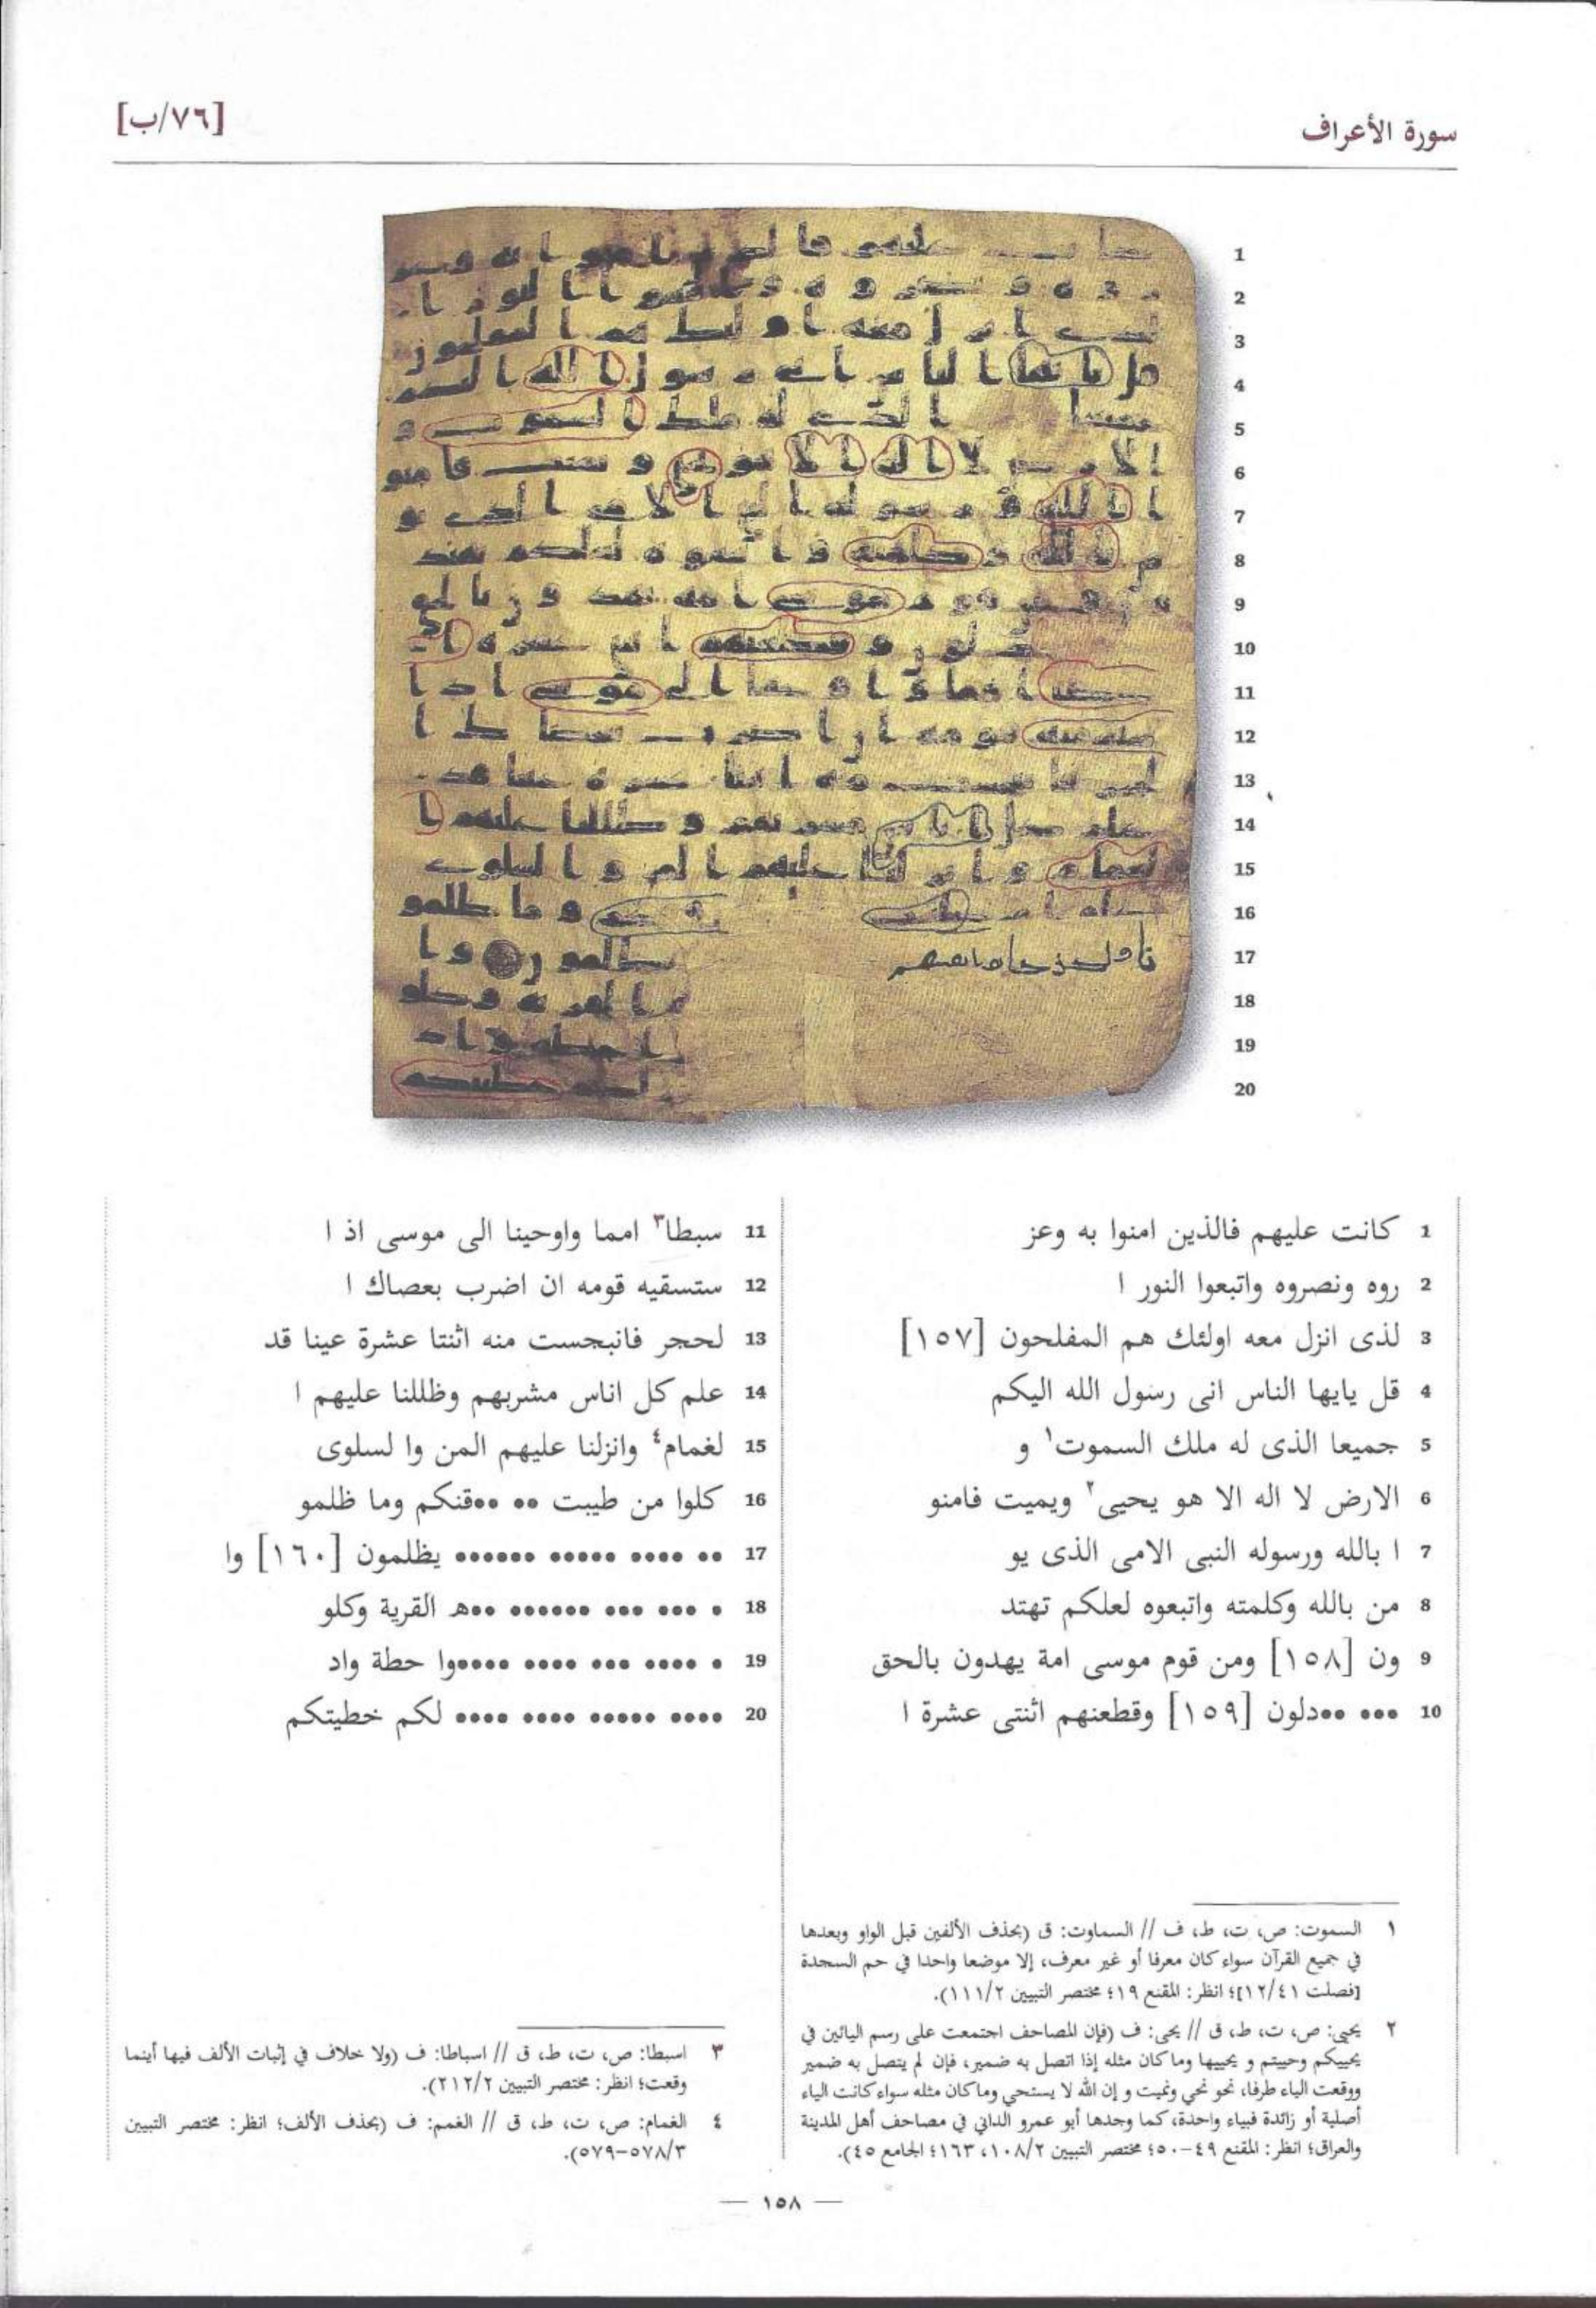 سورة الأعراف
[٧٦/ب]
1
2
3
4
5
6
7
8
9
10
11
12
13
14
15
16
17
18
19
20
1 كانت عليهم فالذين امنوا به وعز
2 روه ونصروه واتبعوا النور ا
3 لذى انزل معه اولئك هم المفلحون [١٥٧]
4 قل يايها الناس انى رسول الله اليكم
5 جميعا الذى له ملك السموت١ و
6 الارض لا اله الا هو يحيى٢ ويميت فامنو
7 ا بالله ورسوله النبى الامى الذى يو
8 من بالله وكلمته واتبعوه لعلكم تهتد
9 ون [١٥٨] ومن قوم موسى امة يهدون بالحق
10 ••• ••دلون [١٥٩] وقطعنهم اثنتى عشرة ا
11 سبطا٣ امما واوحينا الى موسى اذ ا
12 ستسقيه قومه ان اضرب بعصاك ا
13 لحجر فانبجست منه اثنتا عشرة عينا قد
14 علم كل اناس مشربهم وظللنا عليهم ا
15 لغمام٤ وانزلنا عليهم المن وا لسلوى
16 كلوا من طيبت •• ••قنكم وما ظلمو
17 •• •••• ••••• •••••• يظلمون [١٦٠] وا
18 • •••• ••• •••••• ••ه القرية وكلو
19 • •••• ••• •••• ••••وا حطة واد
20 •••• ••••• •••• •••• لكم خطيتكم
١ السموت: ص، ت، ط، ف // السماوت: ق (بحذف الألفين قبل الواو وبعدها
في جميع القرآن سواء كان معرفا أو غير معرف، إلا موضعا واحدا في حم السجدة
[فصلت ١٢/٤١]؛ انظر: المقنع ١٩؛ مختصر التبيين ١١١/٢).
٢ يحيى: ص، ت، ط، ق // يحى: ف (فإن المصاحف اجتمعت على رسم اليائين في
يحييكم وحييتم و يحييها وما كان مثله إذا اتصل به ضمير، فإن لم يتصل به ضمير
ووقعت الياء طرفا، نحو نحي ونميت و إن الله لا يستحي وما كان مثله سواء كانت الياء
أصلية أو زائدة فبياء واحدة، كما وجدها أبو عمرو الداني في مصاحف أهل المدينة
والعراق؛ انظر: المقنع ٤٩-٥٠؛ مختصر التبيين ١٠٨/٢، ١٦٣؛ الجامع ٤٥).
٣ اسبطا: ص، ت، ط، ق // اسباطا: ف (ولا خلاف في إثبات الألف فيها أينما
وقعت؛ انظر: مختصر التبيين ٢١٢/٢).
٤ الغمام: ص، ت، ط، ق // الغمم: ف (بحذف الألف؛ انظر: مختصر التبيين
٥٧٨/٣-٥٧٩).
— ١٥٨ —